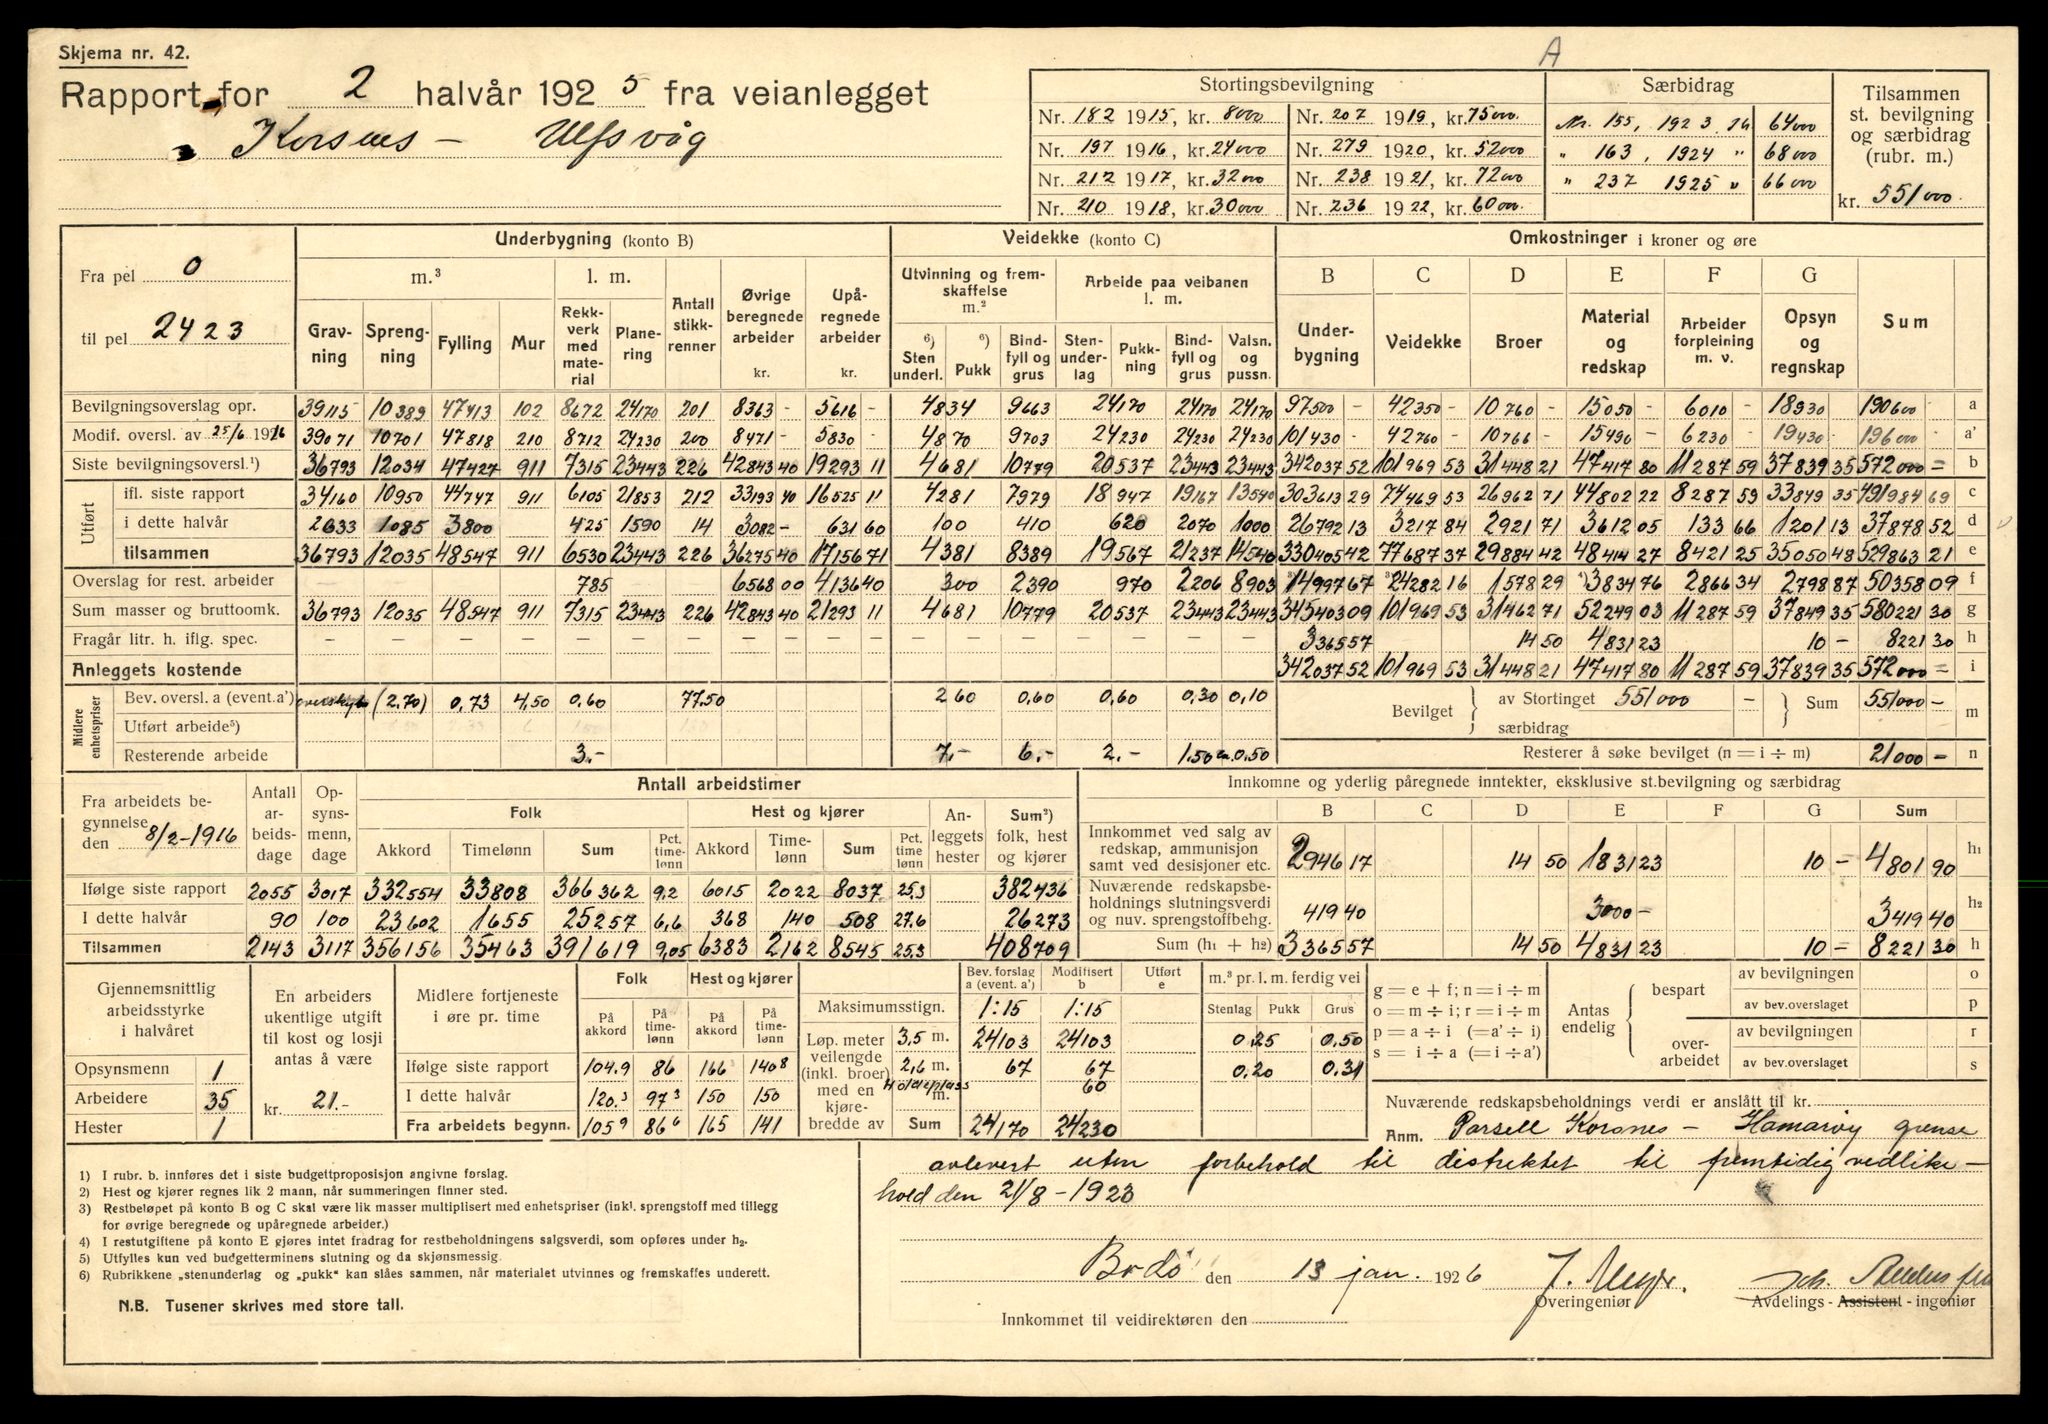 Skjema nr. 42.
A
Rapport for 2 halvår 1925 fra veianlegget
Korsnes - Ulfsvåg
Stortingsbevilgning
Nr. 182 1915, kr. 8000 Nr. 207 1919, kr. 75000
Nr. 197 1916, kr. 24000 Nr. 279 1920, kr. 52000
Nr. 212 1917, kr. 32000 Nr. 238 1921, kr. 72000
Nr. 210 1918, kr. 30000 Nr. 236 1922, kr. 60000
Særbidrag
Nr. 155, 1923 64000
" 163, 1924 " 68000
" 237 1925 " 66000
Tilsammen
st. bevilgning
og særbidrag
(rubr. m.)
kr. 551000
Fra pel 0
til pel 2423
Underbygning (konto B) Veidekke (konto C) Omkostninger i kroner og øre
m.³ l. m. Antall stikk-renner Øvrige beregnede arbeider kr. Upå-regnede arbeider kr. Utvinning og frem-skaffelse m.² Arbeide paa veibanen l. m. B C D E F G
Grav-ning Spreng-ning Fylling Mur Rekk-verk med mate-rial Plane-ring ⁶) Sten underl. ⁶) Pukk Bind-fyll og grus Sten-under-lag Pukk-ning Bind-fyll og grus Valsn. og pussn. Under-bygning Veidekke Broer Material og redskap Arbeider forpleining m. v. Opsyn og regnskap Sum
Bevilgningsoverslag opr. 39115 10389 47413 102 8672 24170 201 8363 - 5616 - 4834 9663 24170 24170 24170 97500 - 42350 - 10760 - 15050 - 6010 - 18930 190600 a
Modif. oversl. av 25/6 1916 39071 10701 47818 210 8712 24230 200 8471 - 5830 - 4870 9703 24230 24230 24230 101430 - 42760 - 10766 - 15490 - 6230 - 19430 - 196000 - a'
Siste bevilgningsoversl.¹) 36793 12034 47427 911 7315 23443 226 42843 40 19293 11 4681 10779 20537 23443 23443 342037 52 101969 53 31448 21 47417 80 11287 59 37839 35 572000 = b
Utført
ifl. siste rapport 34160 10950 44747 911 6105 21853 212 33193 40 16525 11 4281 7979 18947 19167 13540 303613 29 74469 53 26962 71 44802 22 8287 59 33849 35 491984 69 c
i dette halvår 2633 1085 3800 425 1590 14 3082 - 631 60 100 410 620 2070 1000 26792 13 3217 84 2921 71 3612 05 133 66 1201 13 37878 52 d
tilsammen 36793 12035 48547 911 6530 23443 226 36275 40 17156 71 4381 8389 19567 21237 14540 330405 42 77687 37 29884 42 48414 27 8421 25 35050 48 529863 21 e
Overslag for rest. arbeider - - - - 785 - - 6568 00 4136 40 300 2390 970 2206 8903 14997 67 24282 16 1578 29 3834 76 2866 34 2798 87 50358 09 f
Sum masser og bruttoomk. 36793 12035 48547 911 7315 23443 226 42843 40 21293 11 4681 10779 20537 23443 23443 345403 09 101969 53 31462 71 52249 03 11287 59 37849 35 580221 30 g
Fragår litr. h. iflg. spec. - - - - - - - - - - - - - - 3365 57 14 50 4831 23 10 - 8221 30 h
Anleggets kostende 342037 52 101969 53 31448 21 47417 80 11287 59 37839 35 572000 = i
Midlere enhetspriser
Bev. oversl. a (event. a') (2,70) 0,73 4,50 0,60 77,50 2 60 0,60 0,60 0,30 0,10
Utført arbeide⁵)
Resterende arbeide 3.- 7.- 6.- 2.- 1.50 0.50
Bevilget av Stortinget 551000 - særbidrag Sum 551000 - m
Resterer å søke bevilget (n = i ÷ m) 21000 - n
Fra arbeidets be-gynnelse den 8/2-1916
Antall ar-beids-dage Op-syns-menn, dage Antall arbeidstimer
Folk Hest og kjører An-leggets hester Sum²) folk, hest og kjører
Akkord Timelønn Sum Pct. time-lønn Akkord Time-lønn Sum Pct. time lønn
Ifølge siste rapport 2055 3017 332554 33808 366362 9,2 6015 2022 8037 25.3 382436
I dette halvår 90 100 23602 1655 25257 6,6 368 140 508 27.6 26273
Tilsammen 2143 3117 356156 35463 391619 9,05 6383 2162 8545 25.3 408709
Innkomne og yderlig påregnede inntekter, eksklusive st.bevilgning og særbidrag
B C D E F G Sum
Innkommet ved salg av redskap, ammunisjon samt ved desisjoner etc. 2946 17 14 50 1831 23 10 - 4801 90 h₁
Nuværende redskapsbe-holdnings slutningsverdi og nuv. sprengstoffbehg. 419 40 3000 - 3419 40 h₂
Sum (h₁ + h₂) 3365 57 14 50 4831 23 10 - 8221 30 h
Gjennemsnittlig arbeidsstyrke i halvåret
Opsynsmenn 1
Arbeidere 35
Hester 1
En arbeiders ukentlige utgift til kost og losji antas å være
kr. 21.-
Midlere fortjeneste i øre pr. time
Folk Hest og kjører
På akkord På time-lønn På akkord På time-lønn
Ifølge siste rapport 104.9 86 166 140 8
I dette halvår 120.3 97 3 150 150
Fra arbeidets begynn. 105 9 86 6 165 141
Bev. forslag a (event. a') Modifisert b Utført e
Maksimumsstign. 1:15 1:15
Løp. meter veilengde (inkl. broer) med en kjøre-bredde av
3,5 m. 24103 24103
2,6 m. 67 67
m. 60
Sum 24170 24230
m.³ pr. l. m. ferdig vei
Stenlag Pukk Grus
0,25 0,50
0.20 0.31
g = e + f; n = i ÷ m
o = m ÷ i; r = i ÷ m
p = a ÷ i (= a' ÷ i)
s = i ÷ a (= i ÷ a')
Antas endelig bespart av bevilgningen o
av bev.overslaget p
over-arbeidet av bevilgningen r
av bev.overslaget s
Nuværende redskapsbeholdnings verdi er anslått til kr.
Anm. Parsell Korsnes - Hamarøy grense
avlevert uten forbehold til distriktet til fremtidig vedlike-
hold den 21/8 - 1923
1) I rubr. b. innføres det i siste budgettproposisjon angivne forslag.
2) Hest og kjører regnes lik 2 mann, når summeringen finner sted.
3) Restbeløpet på konto B og C skal være lik masser multiplisert med enhetspriser (inkl. sprengstoff med tillegg
for øvrige beregnede og upåregnede arbeider.)
4) I restutgiftene på konto E gjøres intet fradrag for restbeholdningens salgsverdi, som opføres under h₂.
5) Utfylles kun ved budgetterminens slutning og da skjønsmessig.
6) Rubrikkene „stenunderlag og „pukk" kan slåes sammen, når materialet utvinnes og fremskaffes underett.
N.B. Tusener skrives med store tall.
Bodø den 13 jan. 1926
Overingeniør Avdelings - Assistent - ingeniør
Innkommet til veidirektøren den